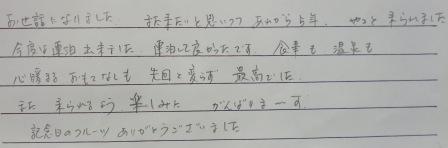 お世話になりました。 また来たいと思いつつ あれから5年、 やっと来られました
今度は連泊出来ました。連泊して良かったです。食事も 温泉も
心暖まる おもてなしも 先回と変らず 最高でした。
また 来られるよう、楽しみに がんばりまーす
記念日のフルーツ ありがとうございました